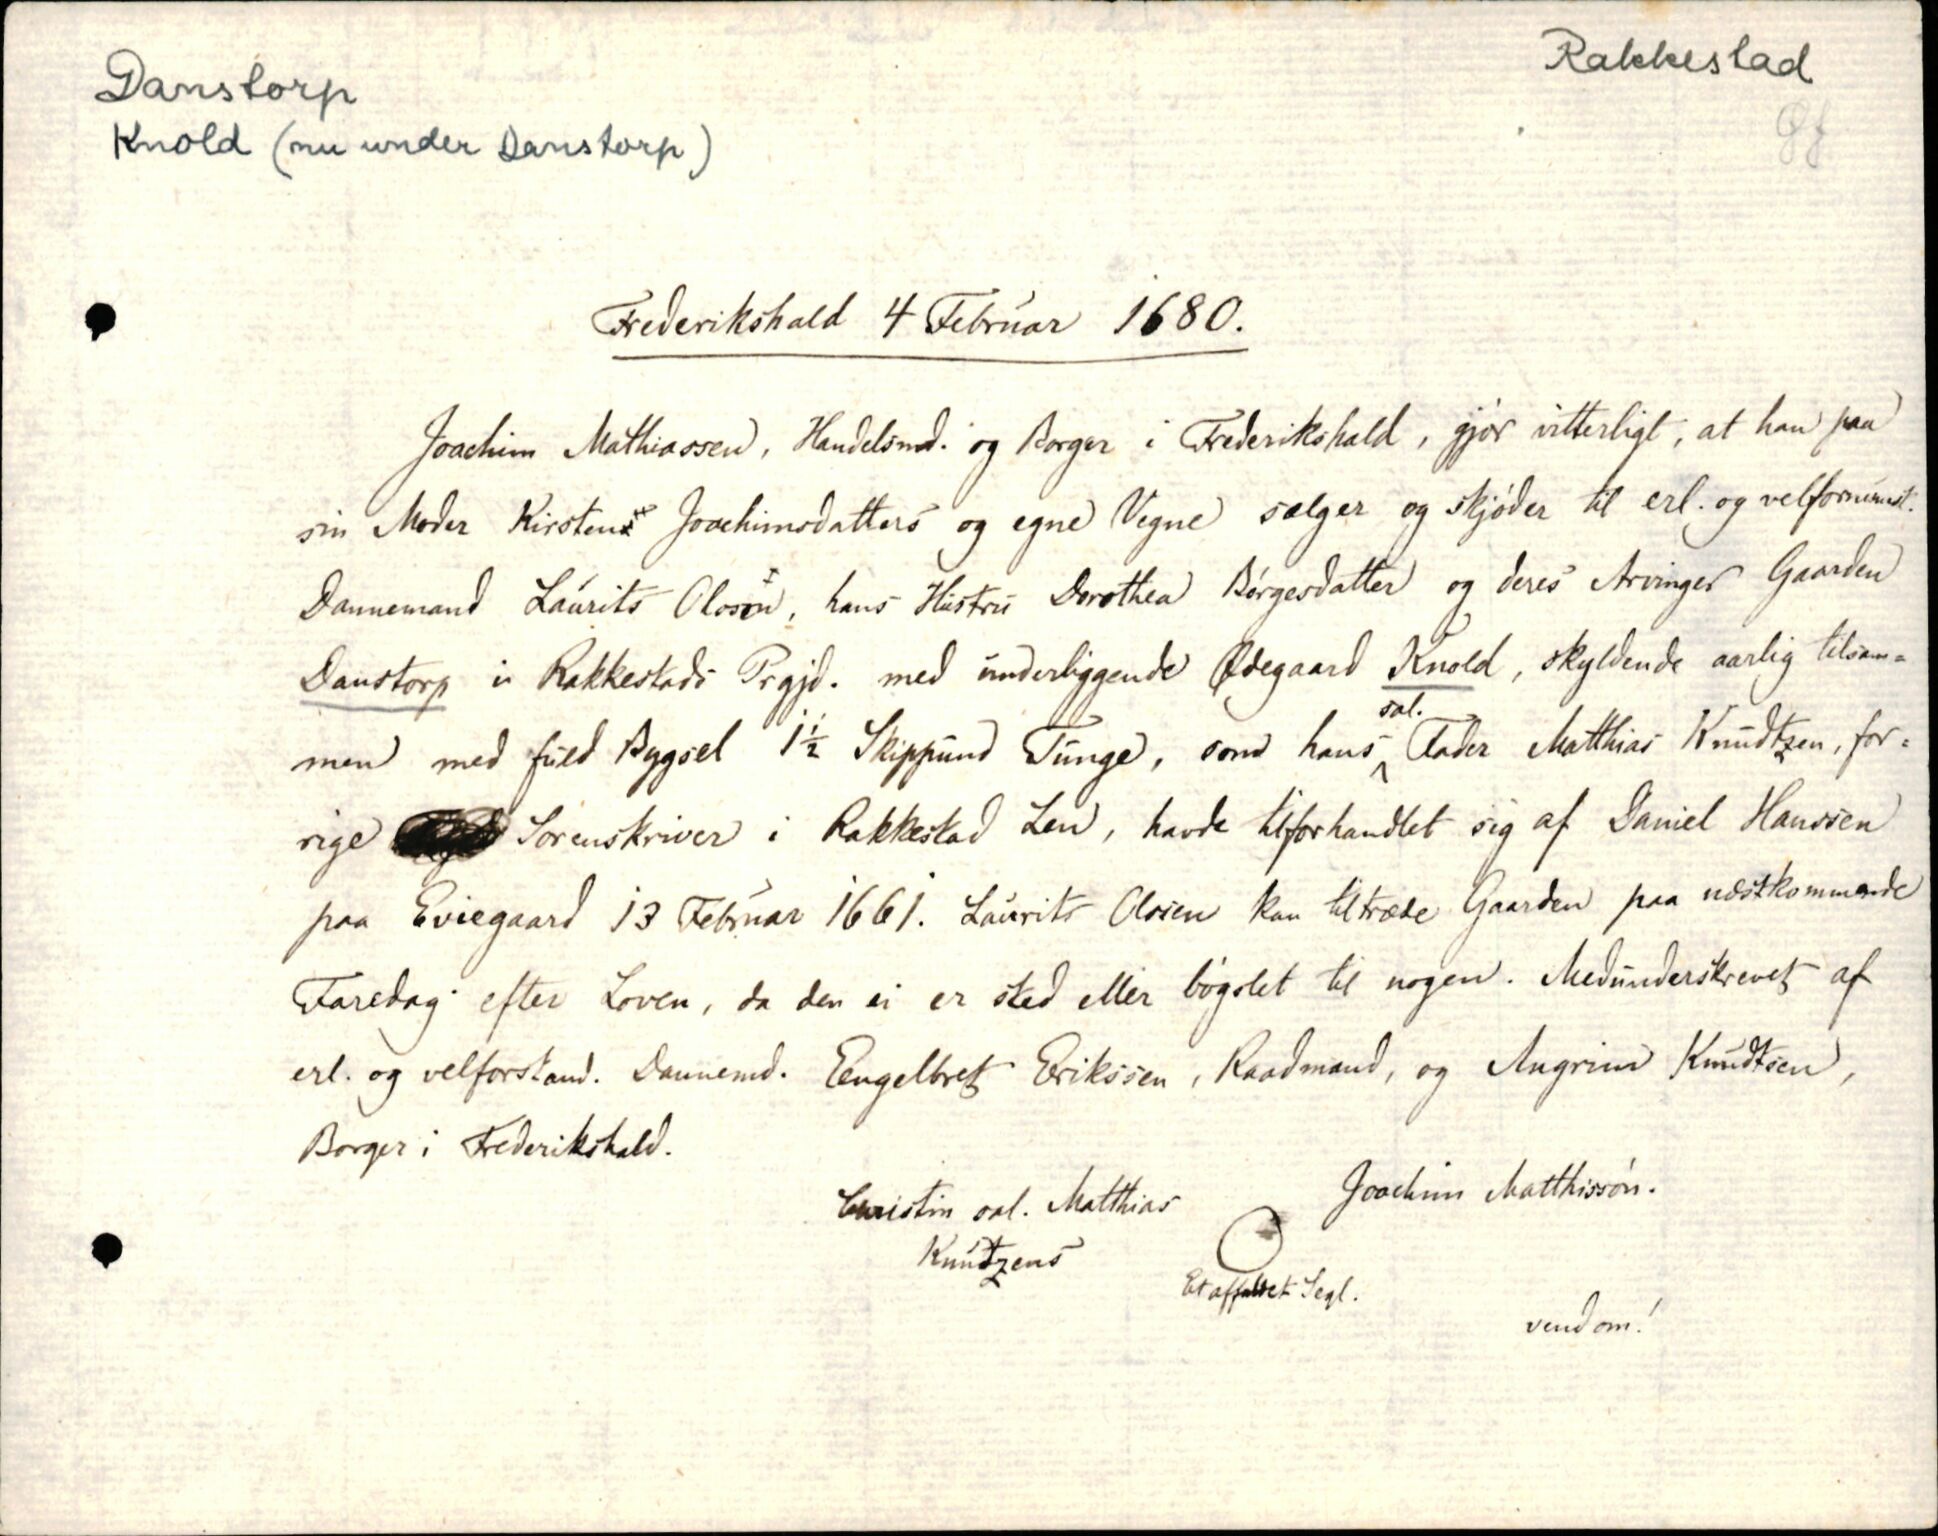 Danstorp
Rakkestad
Knold (nu under Danstorp)
Øf
Frederikshald 4 Februar 1680.
Joachim Mathiassen, Handelsmd. og Borger i Frederikshald, gjör vitterligt, at han paa
sin Moder Kirsten Joachimsdatters og egne Vegne sælger og skjöder til erl. og velfornumst.
Dannemand Laurits Olosön, hans Hustru Dorothea Börgesdatter og deres Arvinger Gaarden
Danstorp i Rakkestads Prgjd. med underliggende Ødegaard Knold, skyldende aarlig tilsam=
men med fuld Bygsel 1½ Skippund Tunge, som hans sal. Fader Matthias Knudtzen, for=
rige Sorenskriver i Rakkestad Len, havde tilforhandlet sig af Daniel Hanssen
paa Eviegaard 13 Februar 1661. Laurits Olosen kan tiltræde Gaarden paa næstkommende
Faredag efter Loven, da den ei er sted eller bögslet til nogen. Medunderskrevet af
erl. og velforstand. Dannemd. Engelbret Erikssen, Raadmand, og Angrim Knudtsen,
Borger i Frederikshald.
Joachim Matthissön.
Christin sal. Matthias
Knutzens
Et affaldet Segl.
vend om!